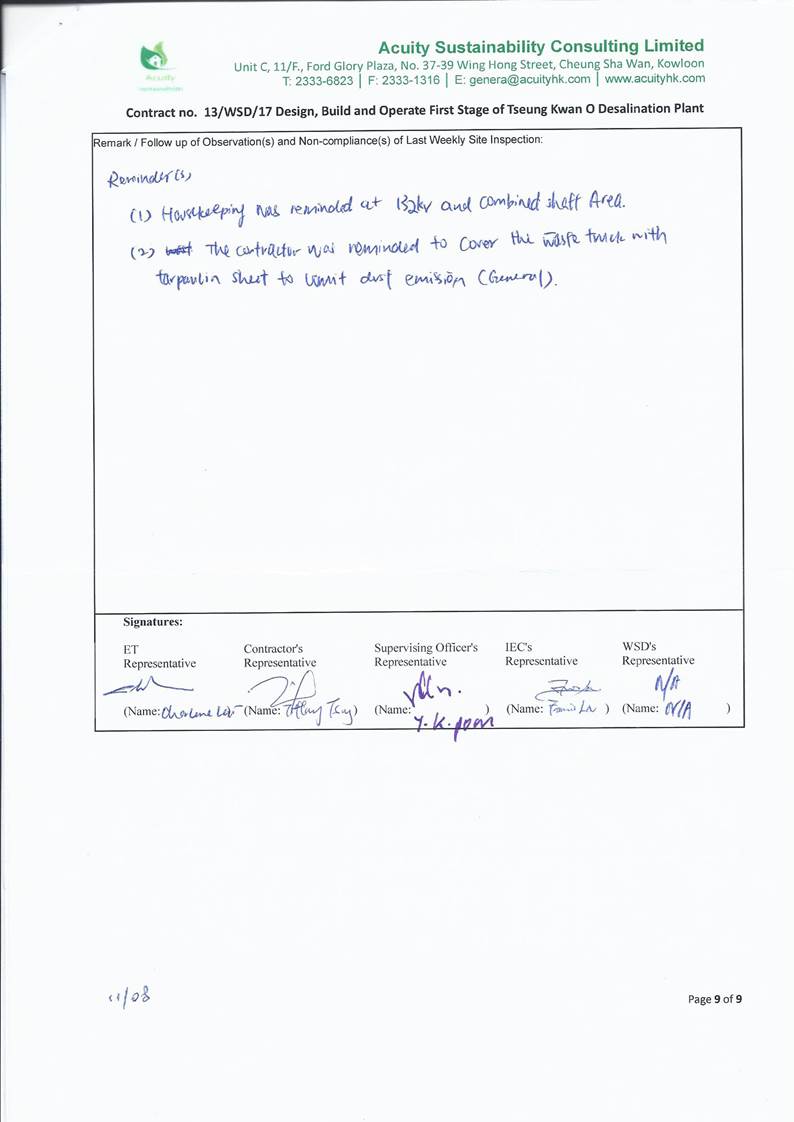 Acuity Sustainability Consulting Limited
Acuity
Unit C, 11/F., Ford Glory Plaza, No. 37-39 Wing Hong Street, Cheung Sha Wan, Kowloon
T: 2333-6823 | F: 2333-1316 | E: genera@acuityhk.com | www.acuityhk.com
Contract no. 13/WSD/17 Design, Build and Operate First Stage of Tseung Kwan O Desalination Plant
Remark / Follow up of Observation(s) and Non-compliance(s) of Last Weekly Site Inspection:
Reminder(s)
(1) Housekeeping was reminded at 132kv and combined shaft Area.
(2) The contractor was reminded to cover the waste truck with
tarpaulin sheet to limit dust emission (General).
Signatures:
ET Contractor's Supervising Officer's IEC's WSD's
Representative Representative Representative Representative Representative
N/A
(Name: Charlene (Name: ) (Name: ) (Name: ) (Name: N/A )
Y. K. poon
11/08
Page 9 of 9